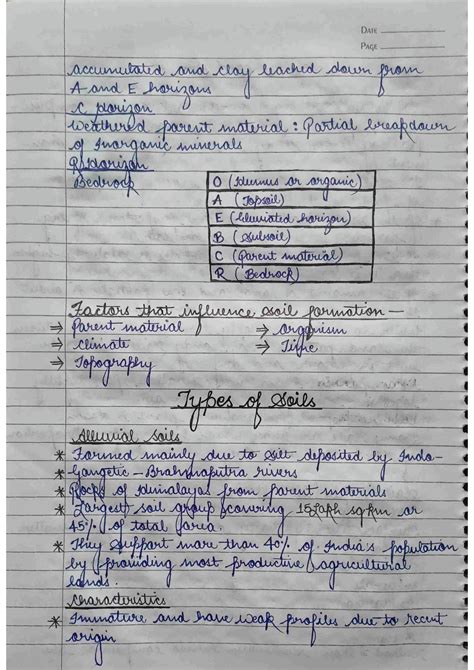 DATE
PAGE
accumulated and clay leached down from
A and E horizons
C horizon
Weathered parent material : Partial breakdown
of Inorganic minerals
R Horizon
Bedrock
O (Humus or organic)
A (Topsoil)
E (Eluviated horizon)
B (Subsoil)
C (Parent material)
R (Bedrock)
Factors that influence soil formation —
⇒ Parent material
⇒ organism
⇒ climate
⇒ Time
⇒ Topography
Types of Soils
Alluvial Soils
* Formed mainly due to silt deposited by Indo-
* Gangetic - Brahmaputra rivers
* Rocks of Himalayas from parent materials
* Largest soil group covering 15Lakh sq km or
45% of total area.
* They support more than 40% of India's population
by providing most productive agricultural
lands.
Characteristics
* Immature and have weak profiles due to recent
origin